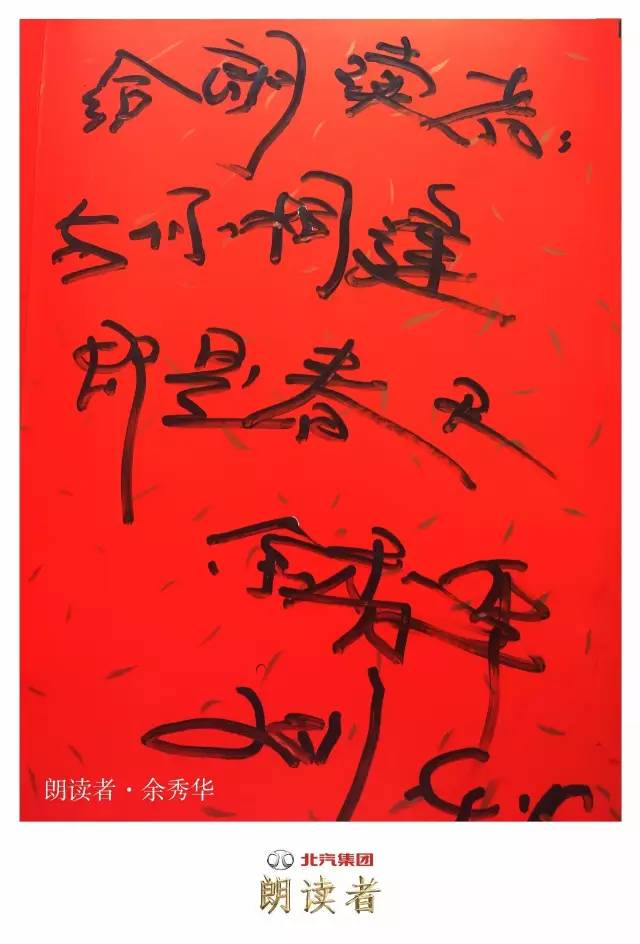 给朗读者:
与你相逢
即是春天
余秀华
朗读者·余秀华
北汽集团
朗读者